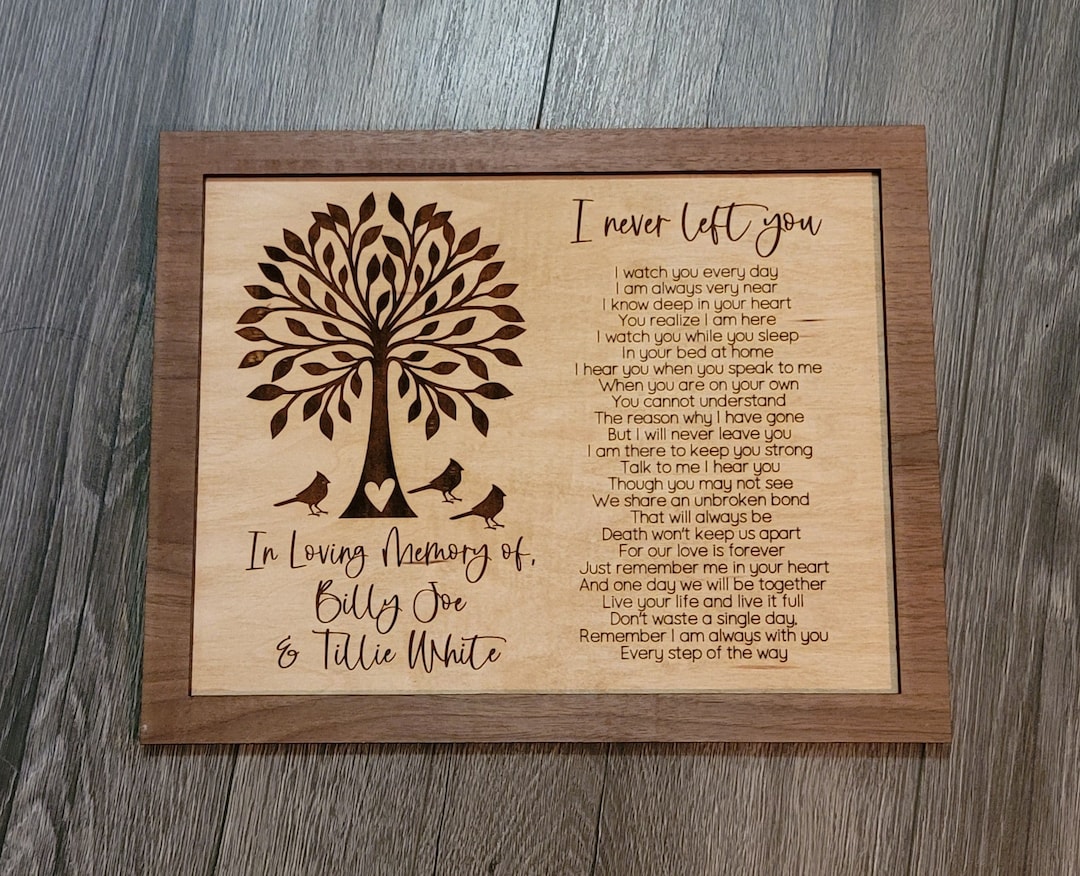 In Loving Memory of,
Billy Joe
& Tillie White
I never left you
I watch you every day
I am always very near
I know deep in your heart
You realize I am here
I watch you while you sleep
In your bed at home
I hear you when you speak to me
When you are on your own
You cannot understand
The reason why I have gone
But I will never leave you
I am there to keep you strong
Talk to me I hear you
Though you may not see
We share an unbroken bond
That will always be
Death won't keep us apart
For our love is forever
Just remember me in your heart
And one day we will be together
Live your life and live it full
Don't waste a single day,
Remember I am always with you
Every step of the way